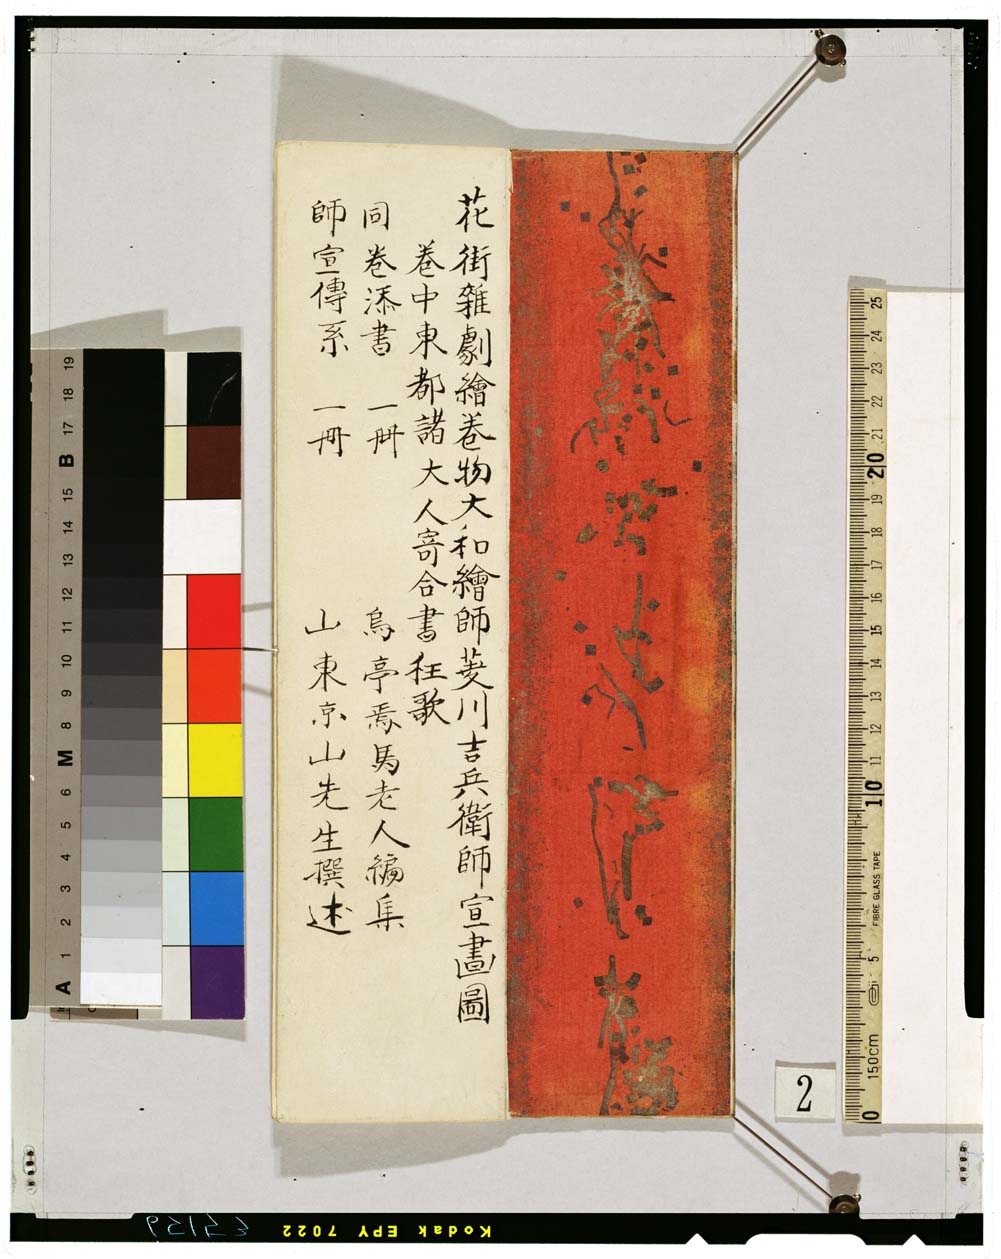 花街雜劇繪卷物大和繪師菱川吉兵衛師宣畫圖
卷中東都諸大人寄合書狂歌
同卷添書 一冊 烏亭焉馬老人編集
師宣傳系 一冊 山東京山先生撰述
19
18
17
B
15
14
13
12
11
10
9
8
M
6
5
4
3
2
1
A
25
24
23
22
21
20
19
18
17
16
15
14
13
12
11
10
FIBRE GLASS TAPE
5
150cm
0
2
Kodak EPY 7022